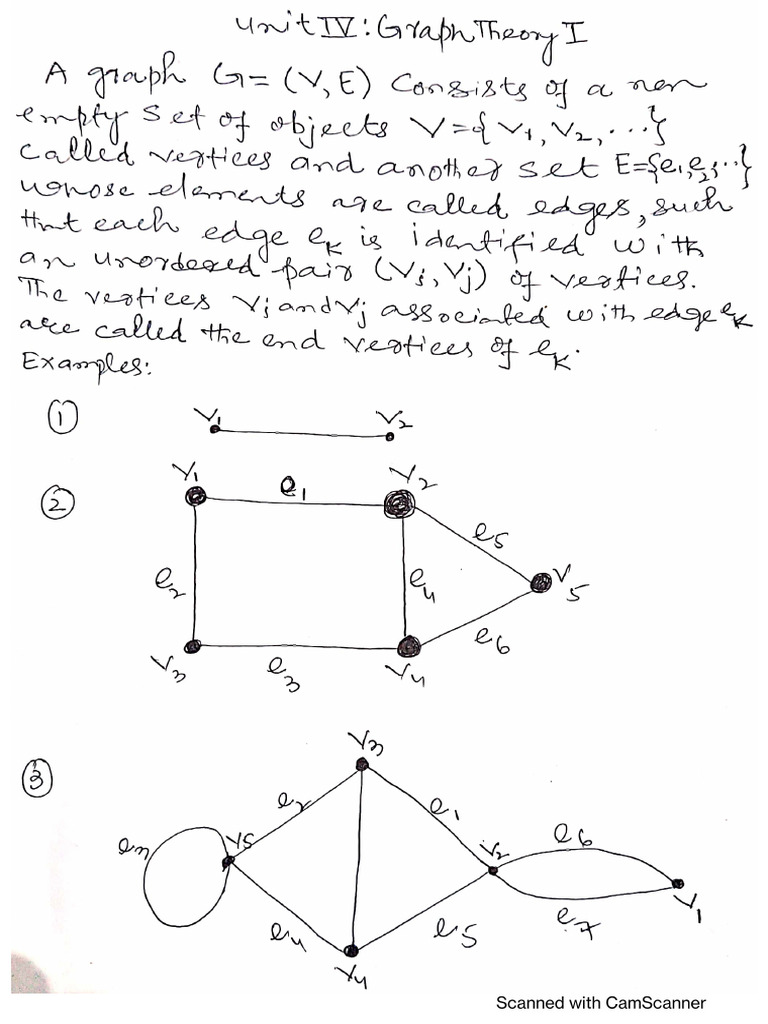 Unit IV: Graph Theory I
A graph G = (V, E) consists of a non
empty set of objects V = {V1, V2, ...}
called vertices and another set E = {e1, e2, ..}
whose elements are called edges, such
that each edge eK is identified with
an unordered pair (Vi, Vj) of vertices.
The vertices Vi and Vj associated with edge eK
are called the end vertices of eK.
Examples:
① V1 V2
② V1 e1 V2
e5
e2 e4 V5
e6
V3 e3 V4
③ V3
e2 e1
V5 V2 e6
V1
e4 e5 e7
V4
Scanned with CamScanner